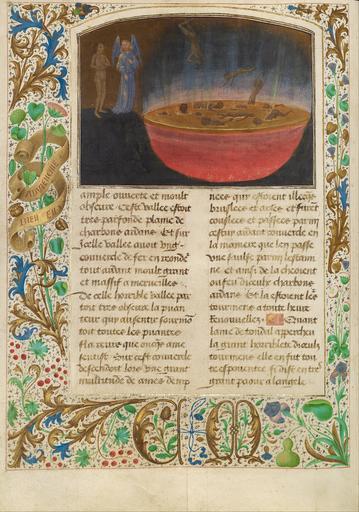 ample ouuerte et moult
obscure. Ceste vallee estoit
tres parfonde plaine de
charbons ardans. Et sur
icelle vallee auoit vng
couuercle de fer en ronde
tout ardant moult grant
et massif a merueilles.
De celle horrible vallee par
toit tres obscur la puan
teur qui
toit toutes les puantes
sentist. Sur cest couuercle
descendoit lors vne grant
multitude de ames
nees qui estoient illecques
bruslees et arses et furent
coulees et passees parmy
cestui ardant couuercle en
la maniere que len passe
vne saulse parmy lestami
ne et ainsi de la cheoient
ou feu dicculx charbons
ardans. Et la estoient les
tourmens a toute heure
renouuellez. Quant
lame de tondal apperceu
la grant horriblete diceulx
tourmens elle en fut tou
te espouentee si dist en tre
grant paour a langele
C M